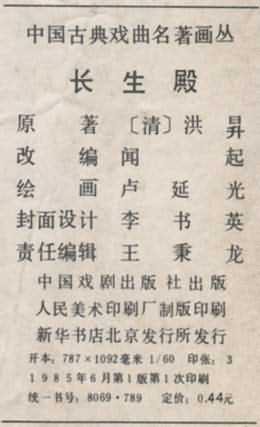 中国古典戏曲名著画丛
长生殿
原著 〔清〕洪昇
改编 闻起
绘画 卢延光
封面设计 李书英
责任编辑 王秉龙
中国戏剧出版社出版
人民美术印刷厂制版印刷
新华书店北京发行所发行
开本：787×1092毫米 1/60 印张：3
1985年6月第1版第1次印刷
统一书号：8069·789 定价：0.44元